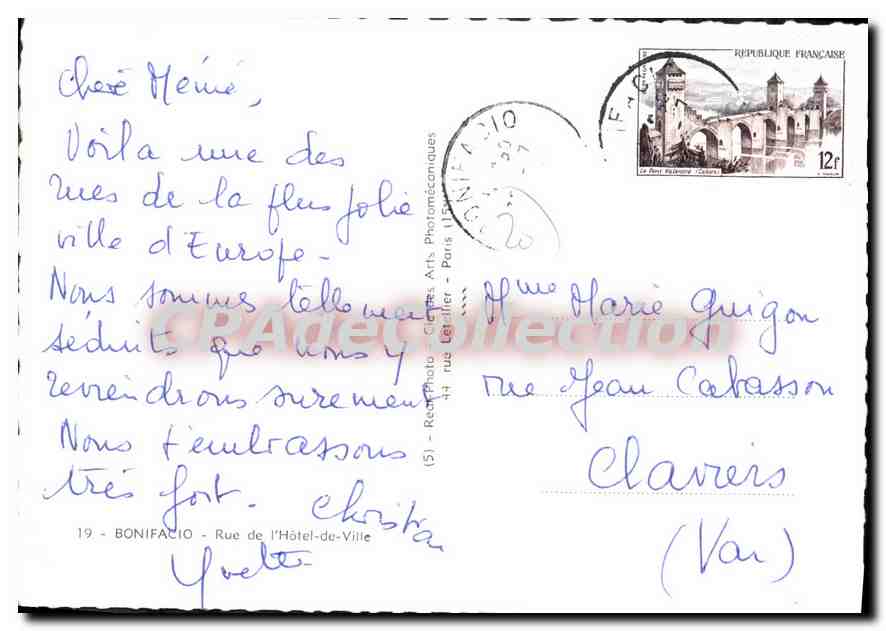 Chère Mémé,
Voila une des
rues de la plus jolie
ville d'Europe -
Nous sommes tellement
séduits que nous y
reviendrons surement
Nous t'embrassons
très fort. Christian
Yvette
19 - BONIFACIO - Rue de l'Hôtel-de-Ville
(5) - Real-Photo - Cie des Arts Photomécaniques
44 rue Letellier - Paris (15)
BONIFACIO
20
REPUBLIQUE FRANÇAISE
Le Pont Valentré (Cahors)
12f
Mme Marie Guigon
rue Jean Cabasson
Claviers
(Var)
CPAdeCollection